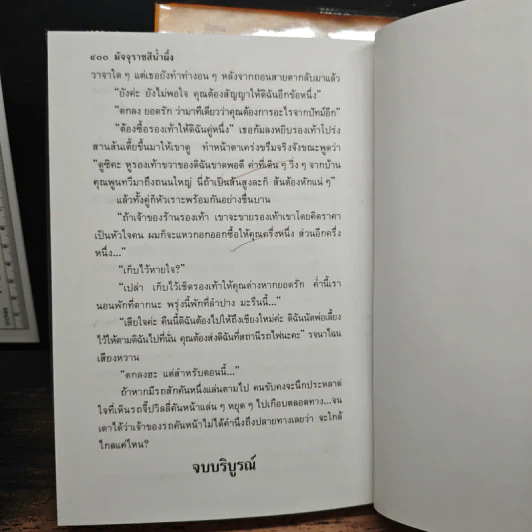 ๔๐๐ มัจจุราชสีน้ำผึ้ง
วาจาใด ๆ แต่เธอยังทำท่างอน ๆ หลังจากถอนสายตากลับมาแล้ว
“ยังค่ะ ยังไม่พอใจ คุณต้องสัญญาให้ดิฉันอีกข้อหนึ่ง”
“ตกลง ยอดรัก ว่ามาทีเดียวว่าคุณต้องการอะไรจากปัทม์อีก”
“ต้องซื้อรองเท้าให้ดิฉันคู่หนึ่ง” เธอก้มลงหยิบรองเท้าโปร่ง
สานส้นเตี้ยขึ้นมาให้เขาดู ทำหน้าตาเคร่งขรึมจริงจังขณะพูดว่า
“ดูซิคะ หูรองเท้าขวาของดิฉันขาดพอดี ค่าที่เดิน ๆ วิ่ง ๆ จากบ้าน
คุณพูนทวีมาถึงถนนใหญ่ นี่ถ้าเป็นส้นสูงละก็ ส้นต้องหักแน่ ๆ”
แล้วทั้งคู่ก็หัวเราะพร้อมกันอย่างชื่นบาน
“ถ้าเจ้าของร้านรองเท้า เขาจะขายรองเท้าเขาโดยคิดราคา
เป็นหัวใจคน ผมก็จะแหวกอกออกซื้อให้คุณครึ่งหนึ่ง ส่วนอีกครึ่ง
หนึ่ง...”
“เก็บไว้หายใจ?”
“เปล่า เก็บไว้เช็ดรองเท้าให้คุณต่างหากยอดรัก ค่ำนี้เรา
นอนพักที่ตากนะ พรุ่งนี้พักที่ลำปาง มะรืนนี้...”
“เสียใจค่ะ คืนนี้ดิฉันต้องไปให้ถึงเชียงใหม่ค่ะ ดิฉันนัดพ่อเลี้ยง
ไว้ให้ตามดิฉันไปที่นั่น คุณต้องส่งดิฉันที่สถานีรถไฟนะคะ” รจนาไฉน
เสียงหวาน
“ตกลงฮะ แต่สำหรับตอนนี้...”
ถ้าหากมีรถสักคันหนึ่งแล่นตามไป คนขับคงจะนึกประหลาด
ใจที่เห็นรถจี๊ปวิลลี่คันหน้าแล่น ๆ หยุด ๆ ไปเกือบตลอดทาง...จน
เดาได้ว่าเจ้าของรถคันหน้าไม่ได้คำนึงถึงปลายทางเลยว่า จะใกล้
ไกลแค่ไหน?
จบบริบูรณ์